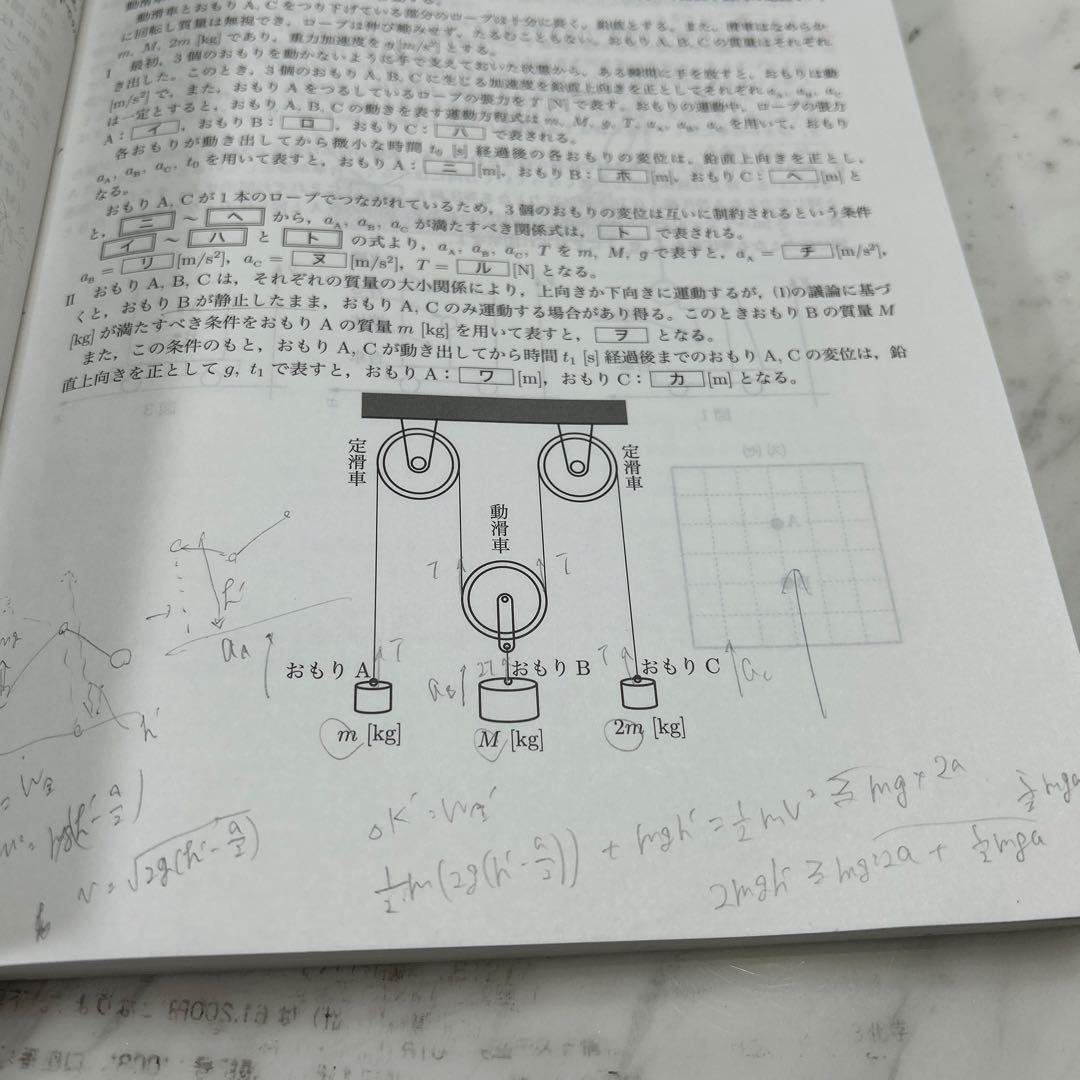 動滑車とおもり A, C をつり下げている部分のロープは十分に長く,鉛直とする。また,滑車はなめらか
に回転し質量は無視でき,ロープは伸び縮みせず,たるむこともない。おもり A, B, C の質量はそれぞれ
m, M, 2m [kg] であり,重力加速度を g [m/s²] とする。
I 最初,3 個のおもりを動かないように手で支えておいた状態から,ある瞬間に手を放すと,おもりは動
き出した。このとき,3 個のおもり A, B, C に生じる加速度を鉛直上向きを正としてそれぞれ aA, aB, aC
[m/s²] で,また,おもり A をつるしているロープの張力を T [N] で表す。おもりの運動中,ロープの張力
は一定とすると,おもり A, B, C の動きを表す運動方程式は m, M, g, T, aA, aB, aC を用いて,おもり
A: イ ,おもり B: ロ ,おもり C: ハ で表される。
各おもりが動き出してから微小な時間 t0 [s] 経過後の各おもりの変位は,鉛直上向きを正とし,
aA, aB, aC, t0 を用いて表すと,おもり A: ニ [m],おもり B: ホ [m],おもり C: ヘ [m] と
なる。
おもり A, C が 1 本のロープでつながれているため,3 個のおもりの変位は互いに制約されるという条件
と, ニ ~ ヘ から,aA, aB, aC が満たすべき関係式は, ト で表される。
イ ~ ハ と ト の式より,aA, aB, aC, T を m, M, g で表すと,aA = チ [m/s²],
aB = リ [m/s²],aC = ヌ [m/s²],T = ル [N] となる。
II おもり A, B, C は,それぞれの質量の大小関係により,上向きか下向きに運動するが,(I)の議論に基づ
くと,おもり B が静止したまま,おもり A, C のみ運動する場合があり得る。このときおもり B の質量 M
[kg] が満たすべき条件をおもり A の質量 m [kg] を用いて表すと, ヲ となる。
また,この条件のもと,おもり A, C が動き出してから時間 t1 [s] 経過後までのおもり A, C の変位は,鉛
直上向きを正として g, t1 で表すと,おもり A: ワ [m],おもり C: カ [m] となる。
定滑車
定滑車
動滑車
T
T
h'
aA
T
おもり A
aB
2T
おもり B
T
おもり C
aC
m [kg]
M [kg]
2m [kg]
h'
v = √2g(h' - a/2)
1/2 m(2g(h' - a/2)) + mgh' = 1/2 mv² ≧ mg × 2a
2mgh' ≧ mg·2a + 1/2 mga